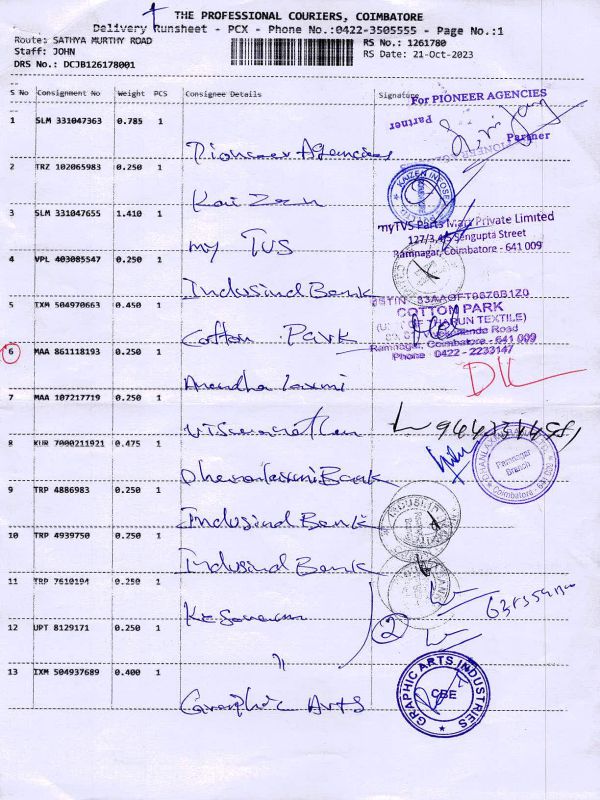 THE PROFESSIONAL COURIERS, COIMBATORE
Delivery Runsheet - PCX - Phone No.:0422-3505555 - Page No.:1
Route: SATHYA MURTHY ROAD
Staff: JOHN
DRS No.: DCJB126178001
RS No.: 1261780
RS Date: 21-Oct-2023
S No Consignment No Weight PCS Consignee Details Signature
1 SLM 331047363 0.785 1 Pioneer Agencies
For PIONEER AGENCIES
Partner
Partner
2 TRZ 102065983 0.250 1 Kai Zen
3 SLM 331047655 1.410 1 my TVS
myTVS Parts Mart Private Limited
127/3,4/5 Sengupta Street
Ramnagar, Coimbatore - 641 009
4 VPL 403085547 0.250 1 Indusind Bank
5 IXM 504970663 0.450 1 Cotton Park
COTTON PARK
Ramnagar, Coimbatore - 641 009
Phone : 0422 - 2233147
6 MAA 861118193 0.250 1 Anandha Laxmi
7 MAA 107217719 0.250 1
8 KUR 7000211921 0.475 1 Dhanalaxmi Bank
Ramnagar
Branch
Coimbatore
9 TRP 4886983 0.250 1 Indusind Bank
10 TRP 4939750 0.250 1 Indusind Bank
11 TRP 7610194 0.250 1
2
12 UPT 8129171 0.250 1 "
13 IXM 504937689 0.400 1 Graphic Arts
GRAPHIC ARTS INDUSTRIES
CBE